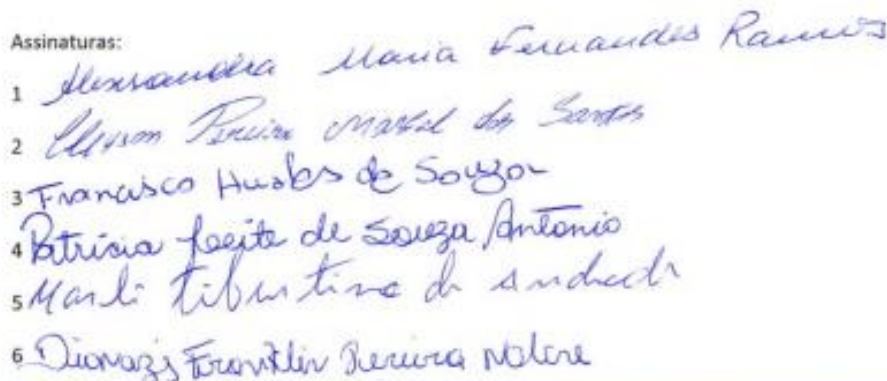 Assinaturas:
1 Alexsandra Maria Fernandes Ramos
2 Pereira dos Santos
3 Francisco de Souza
4 Patricia Leite de Souza Antonio
5 Marli tiburtino de Andrade
6 Franklin Pereira